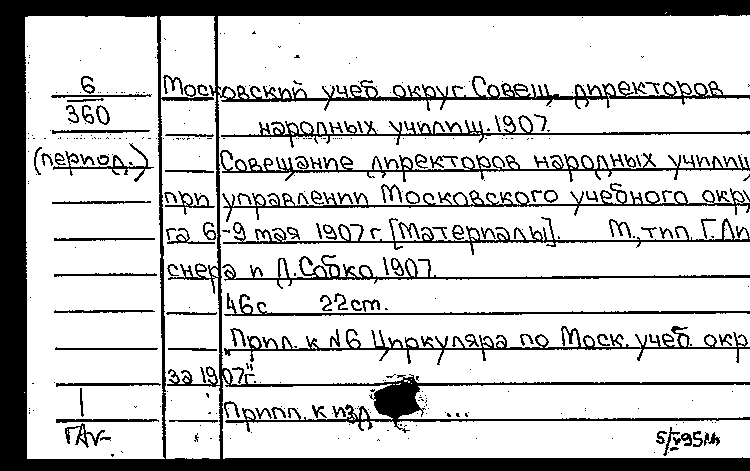 6
360
(период.)
Московский учеб округ. Совещ. директоров
народных училищ. 1907
Совещание директоров народных училищ
при управлении Московского учебного окру
га 6-9 мая 1907 г. [Материалы]. М., тип. Г. Ли
снера и Д. Собко, 1907.
46 с 22 cm.
"Прил. к №6 Циркуляра по Моск. учеб. окр
за 1907 г."
Приплл. к изд ...
1
5/V-95